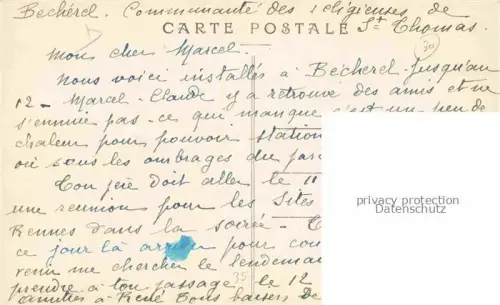 Bécherel. Communauté des religieuses de
St Thomas.
CARTE POSTALE
30
Mon cher Marcel.
Nous voici installés à Bécherel jusqu'au
12 - Marcel-Claude y a retrouvé des amis et ne
s'ennuie pas - ce qui manque c'est un peu de
chaleur pour pouvoir station
où sous les ombrages du parc
Ton père doit aller le 11
une réunion pour les Sites
Rennes dans la soirée -
ce jour là pour
venir me chercher le lendemain
prendre à ton passage le 12
35
amitiés à René Bons baisers de
privacy protection
Datenschutz